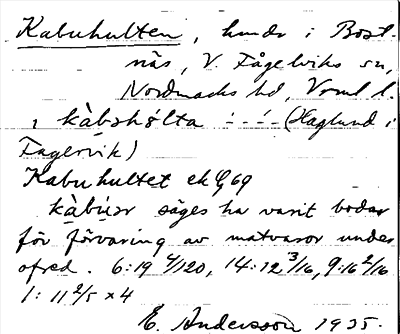 Kabuhulten, hmdr i Bost-
näs, V. Fågelviks sn,
Nordmarks hd, Vrml. l.
, kàbshólta -́ - -́ - (Haglund i
Fagervik)
Kabuhultet ek G 69
kàbúər säges ha varit bodar
för förvaring av matvaror under
ofred. 6:19 4/120, 14:12 3/16, 9:16 2/16
1:11 2/5 x 4
E. Andersson 1935.